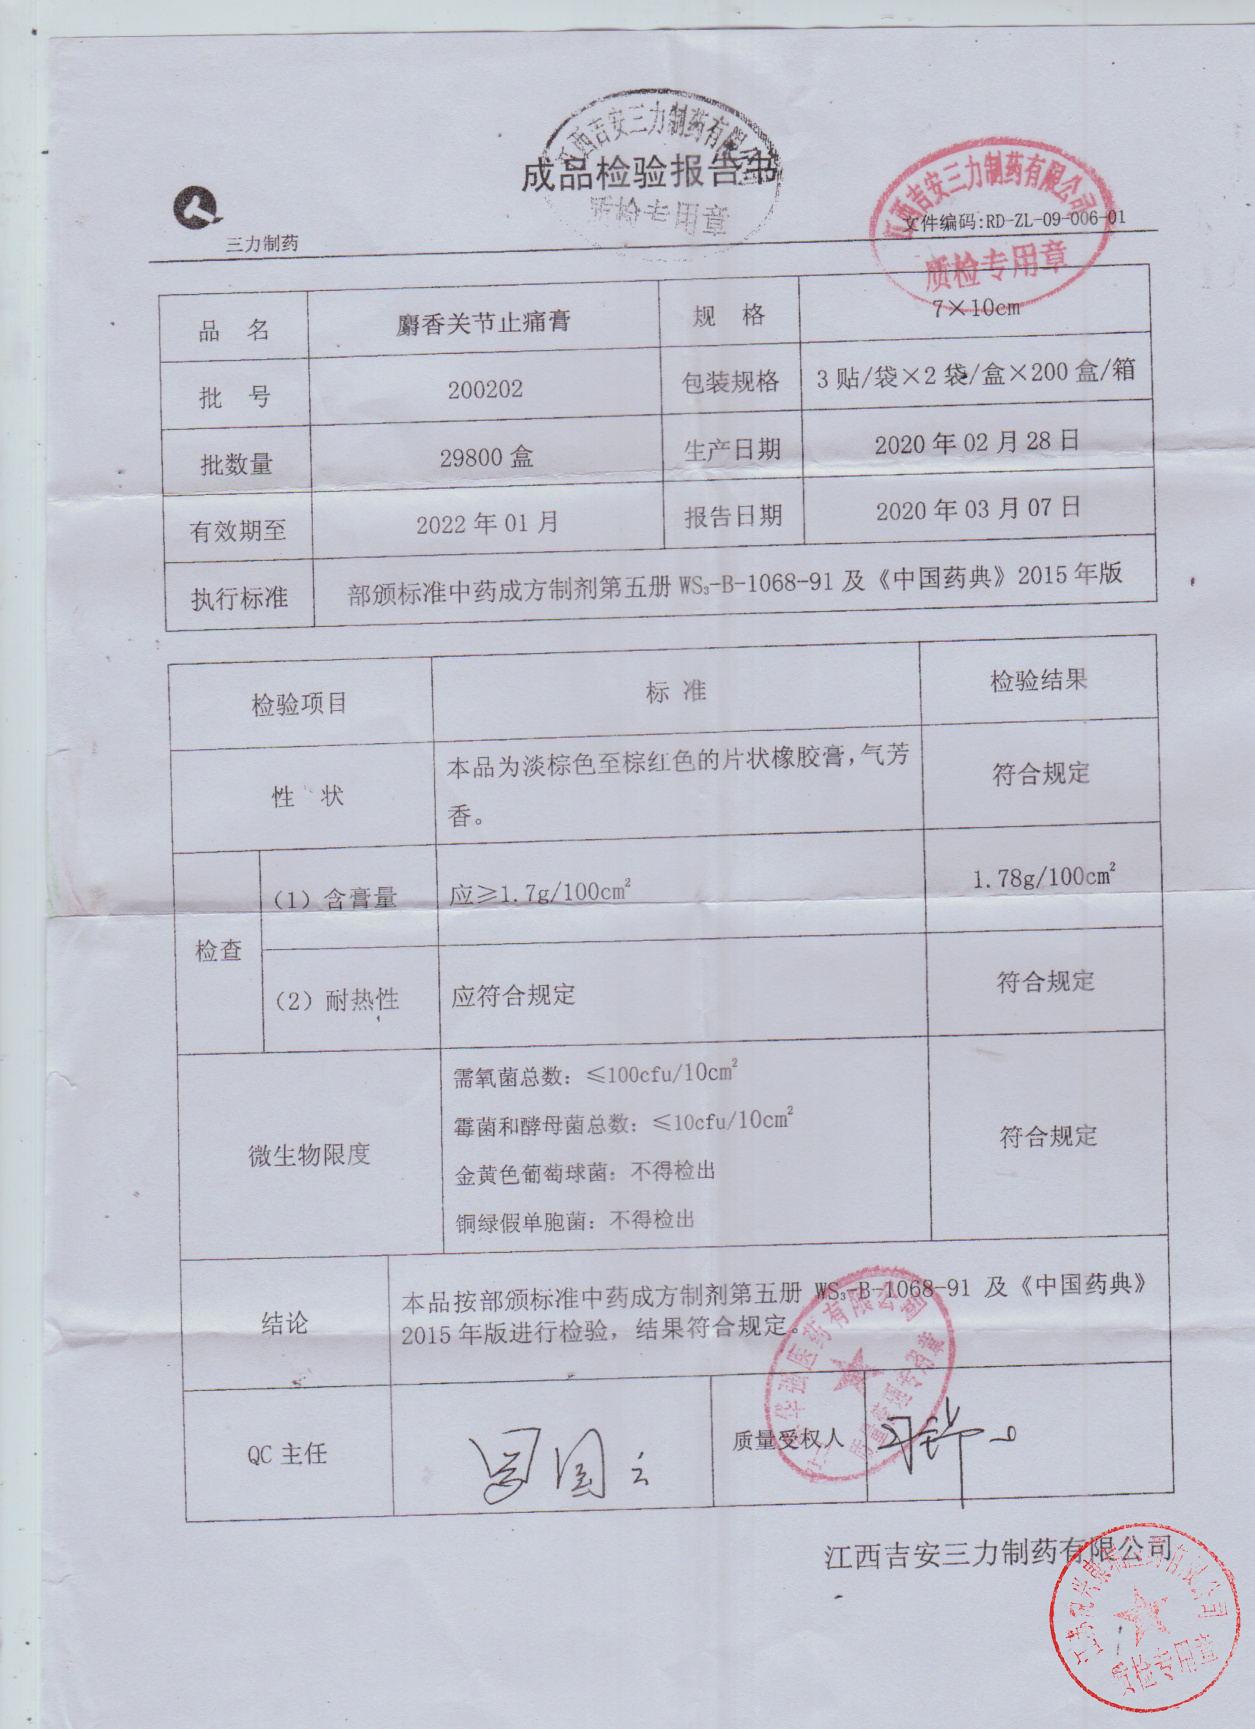 江西吉安三力制药有限公司
成品检验报告书
质检专用章
江西吉安三力制药有限公司
质检专用章
三力制药
文件编码:RD-ZL-09-006-01
品 名 麝香关节止痛膏 规 格 7×10cm
批 号 200202 包装规格 3贴/袋×2袋/盒×200盒/箱
批数量 29800盒 生产日期 2020年02月28日
有效期至 2022年01月 报告日期 2020年03月07日
执行标准 部颁标准中药成方制剂第五册WS₃-B-1068-91及《中国药典》2015年版
检验项目 标 准 检验结果
性 状 本品为淡棕色至棕红色的片状橡胶膏,气芳
香。
符合规定
检查
(1)含膏量 应≥1.7g/100cm² 1.78g/100cm²
(2)耐热性 应符合规定 符合规定
微生物限度
需氧菌总数:≤100cfu/10cm²
霉菌和酵母菌总数:≤10cfu/10cm²
金黄色葡萄球菌:不得检出
铜绿假单胞菌:不得检出
符合规定
结论
本品按部颁标准中药成方制剂第五册 WS₃-B-1068-91 及《中国药典》
2015年版进行检验,结果符合规定。
华强医药有限公司
质量管理专用章
QC主任 质量受权人
江西吉安三力制药有限公司
医药有限公司
质检专用章